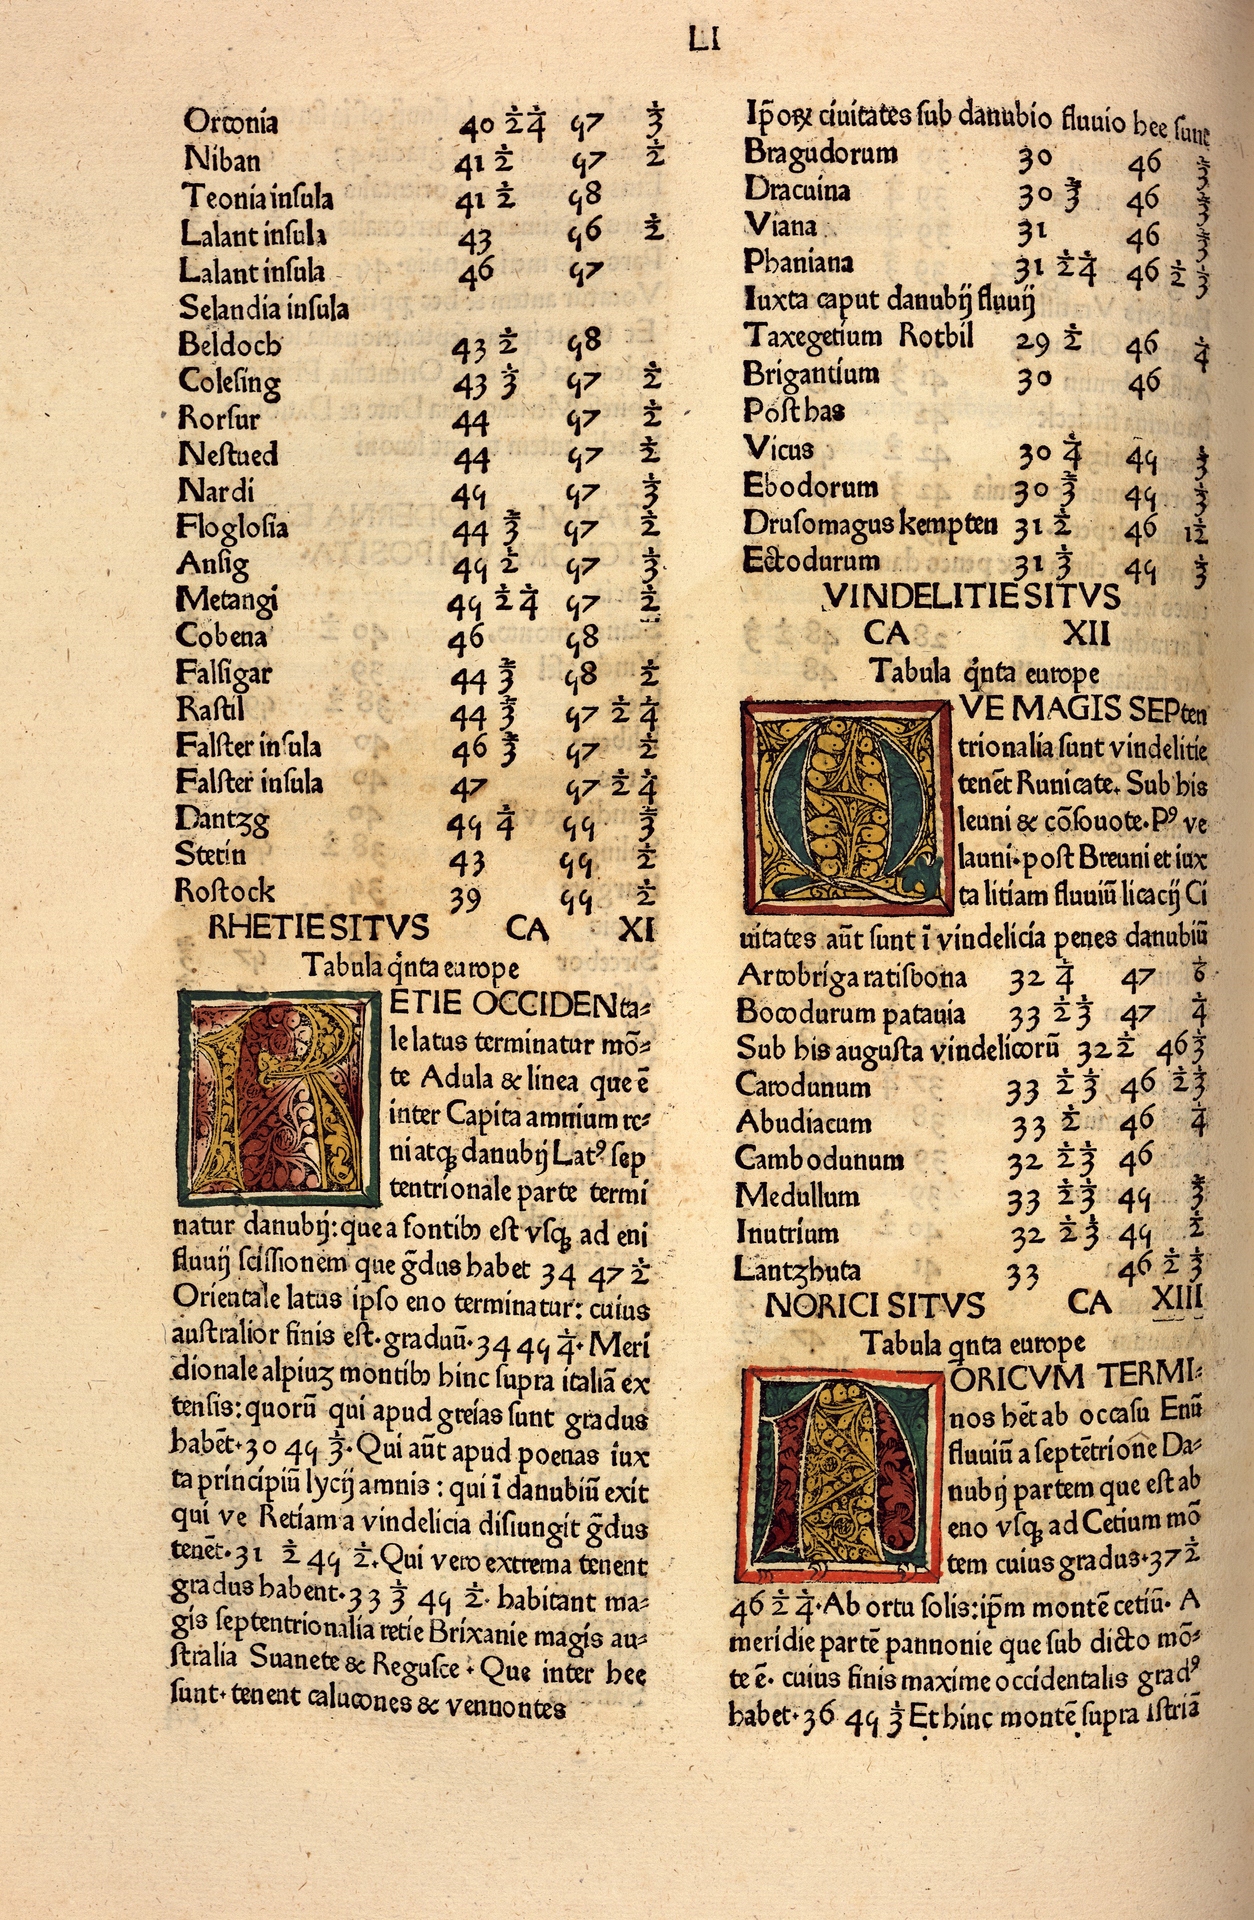 LI
Ortonia 40 ½ ¼ 57 ⅓
Niban 41 ½ 57 ½
Teonia insula 41 ½ 58
Lalant insula 43 56 ½
Lalant insula 46 57
Selandia insula
Beldoch 43 ½ 58
Colesing 43 ⅓ 57 ½
Rorsur 44 57 ½
Nestued 44 57 ½
Nardi 45 57 ⅓
Floglosia 44 ⅔ 57 ½
Ansig 45 ½ 57 ⅓
Metangi 45 ½ ¼ 57 ½
Cobena 46 58
Falsigar 44 ⅔ 58 ½
Rastil 44 ⅔ 57 ½ ¼
Falster insula 46 ⅔ 57 ½
Falster insula 47 57 ½ ¼
Dantzg 45 ¼ 55 ⅔
Stetin 43 55 ½
Rostock 39 55 ½
RHETIE SITVS CA XI
Tabula q̇nta europe
RETIE OCCIDENta⸗
le latus terminatur mō⸗
te Adula & linea que ē
inter Capita amnium re⸗
ni atqꝫ danubij Latꝰ sep
tentrionale parte termi
natur danubij: que a fontibꝰ est vsqꝫ ad eni
fluuij scissionem que g̃dus habet 34 47 ½
Orientale latus ipso eno terminatur: cuius
australior finis est·graduū·34 45 ¼· Meri
dionale alpiuꝫ montibꝰ hinc supra italiā ex
tensis: quorū qui apud greias sunt gradus
habēt·30 45 ⅓·Qui aūt apud poenas iux
ta principiū lycij amnis: qui ī danubiū exit
qui ve Retiam a vindelicia disiungit g̃dus
tenēt·31 ½ 45 ½.Qui vero extrema tenent
gradus habent·33 ⅓ 45 ½· habitant ma⸗
gis septentrionalia retie Brixanie magis au⸗
stralia Suanete & Regusce · Que inter hee
sunt·tenent calucones & vennontes
Ip̄oꝝ ciuitates sub danubio fluuio hee sunt
Bragudorum 30 46 ⅔
Dracuina 30 ⅔ 46 ⅔
Viana 31 46 ⅔
Phaniana 31 ½ ¼ 46 ½ ⅓
Iuxta caput danubij fluuij
Taxegetium Rotbil 29 ½ 46 ¼
Brigantium 30 46
Post has
Vicus 30 ¼ 45 ⅓
Ebodorum 30 ⅔ 45 ⅓
Drusomagus kempten 31 ½ 46 1½
Ectodurum 31 ⅓ 45 ⅓
VINDELITIE SITVS
CA XII
Tabula q̇nta europe
QVE MAGIS SEPten
trionalia sunt vindelitie
tenēt Runicate. Sub his
leuni & cōsouote·Pꝰ ve
launi·post Breuni et iux
ta litiam fluuiū licacij Ci
uitates aūt sunt ī vindelicia penes danubiū
Artobriga ratisbona 32 ¼ 47 ⅙
Bocodurum patauia 33 ½ ⅓ 47 ¼
Sub his augusta vindelicorū 32 ½ 46 ⅓
Carodunum 33 ½ ⅓ 46 ½ ⅓
Abudiacum 33 ½ 46 ¼
Cambodunum 32 ½ ⅓ 46
Medullum 33 ½ ⅓ 45 ⅔
Inutrium 32 ½ ⅓ 45 ½
Lantzhuta 33 46 ½ ⅓
NORICI SITVS CA XIII
Tabula qnta europe
NORICVM TERMI⸗
nos hēt ab occasu Enū
fluuiū a septētrione Da⸗
nubij partem que est ab
eno vsqꝫ ad Cetium mō
tem cuius gradus·37 ½
46 ½ ¼·Ab ortu solis: ip̄m montē cetiū· A
meridie partē pannonie que sub dicto mō⸗
te ē· cuius finis maxime occidentalis gradꝰ
habet·36 45 ⅓ Et hinc montē supra istriā